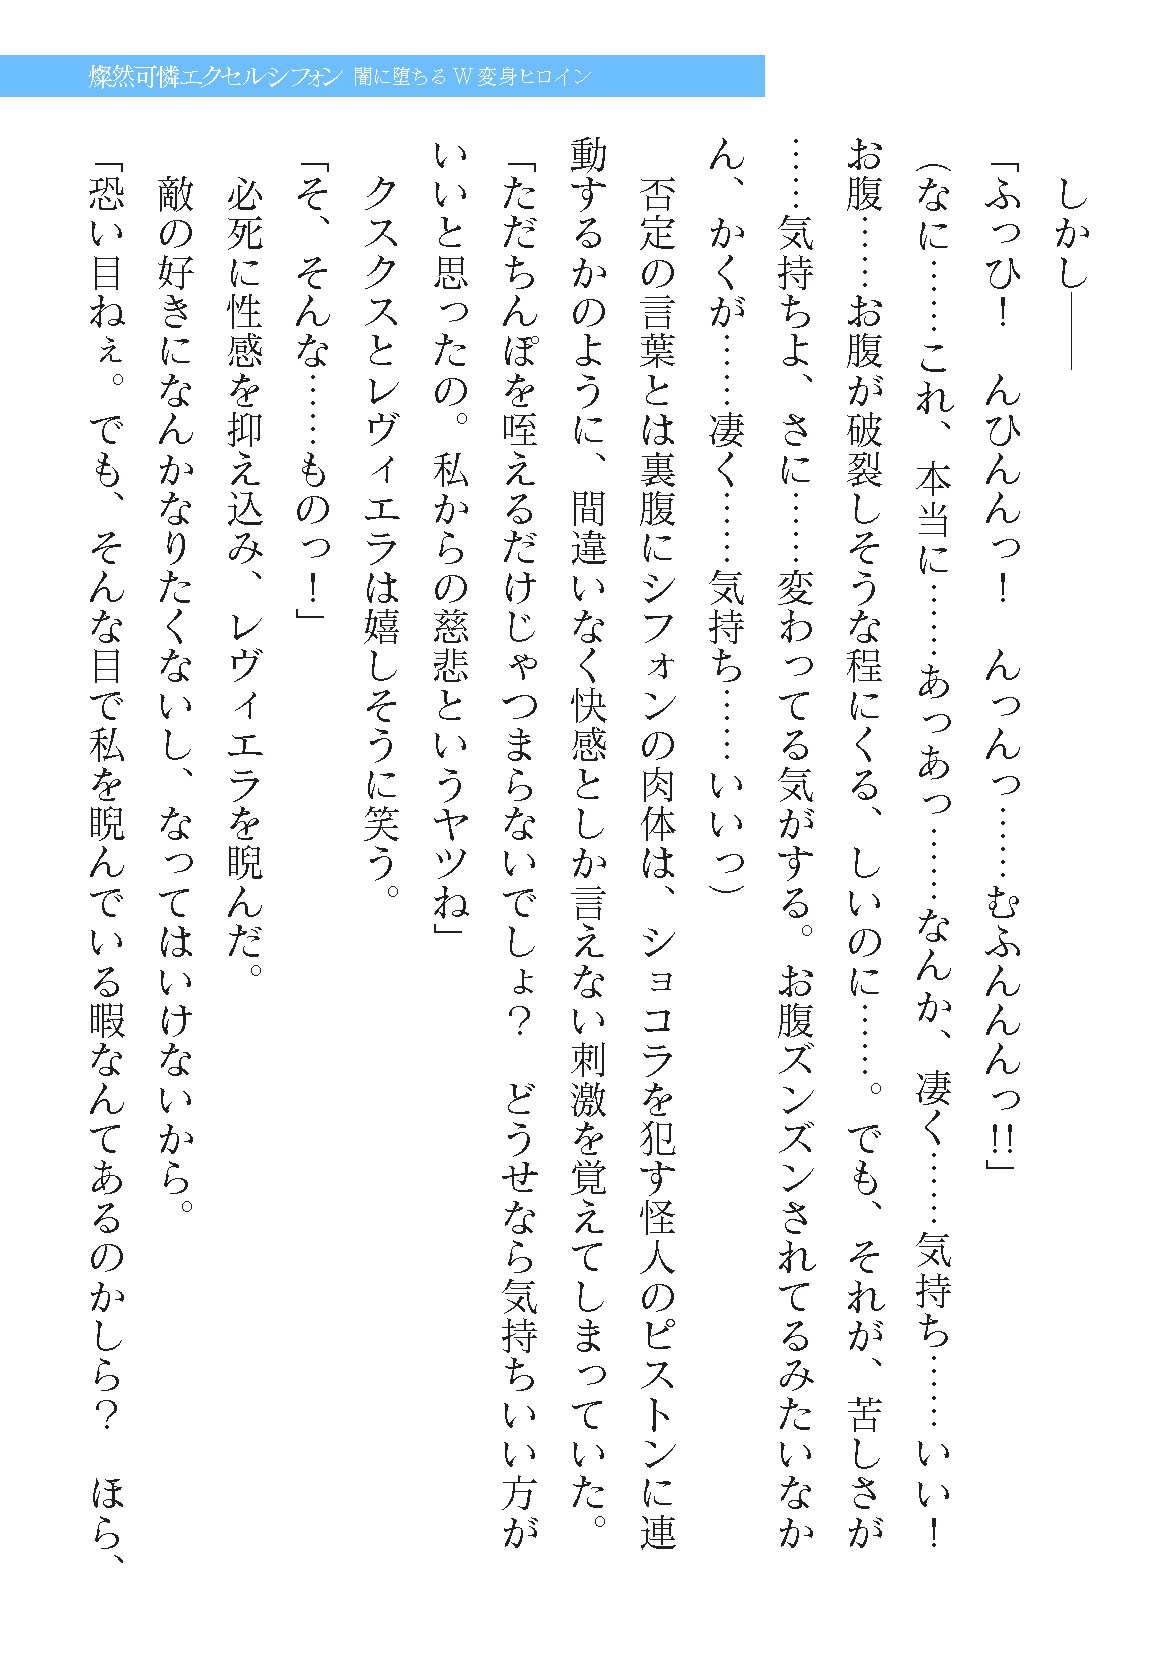 燦然可憐エクセルシフォン 闇に堕ちるW変身ヒロイン
しかし――
「ふっひ！　んひんんっ！　んっんっ……むふんんんっ!!」
（なに……これ、本当に……あっあっ……なんか、凄く……気持ち……いい！
お腹……お腹が破裂しそうな程にくる、しいのに……。でも、それが、苦しさが
……気持ちよ、さに……変わってる気がする。お腹ズンズンされてるみたいなか
ん、かくが……凄く……気持ち……いいっ）
否定の言葉とは裏腹にシフォンの肉体は、ショコラを犯す怪人のピストンに連
動するかのように、間違いなく快感としか言えない刺激を覚えてしまっていた。
「ただちんぽを咥えるだけじゃつまらないでしょ？　どうせなら気持ちいい方が
いいと思ったの。私からの慈悲というヤツね」
クスクスとレヴィエラは嬉しそうに笑う。
「そ、そんな……ものっ！」
必死に性感を抑え込み、レヴィエラを睨んだ。
敵の好きになんかなりたくないし、なってはいけないから。
「恐い目ねぇ。でも、そんな目で私を睨んでいる暇なんてあるのかしら？　ほら、